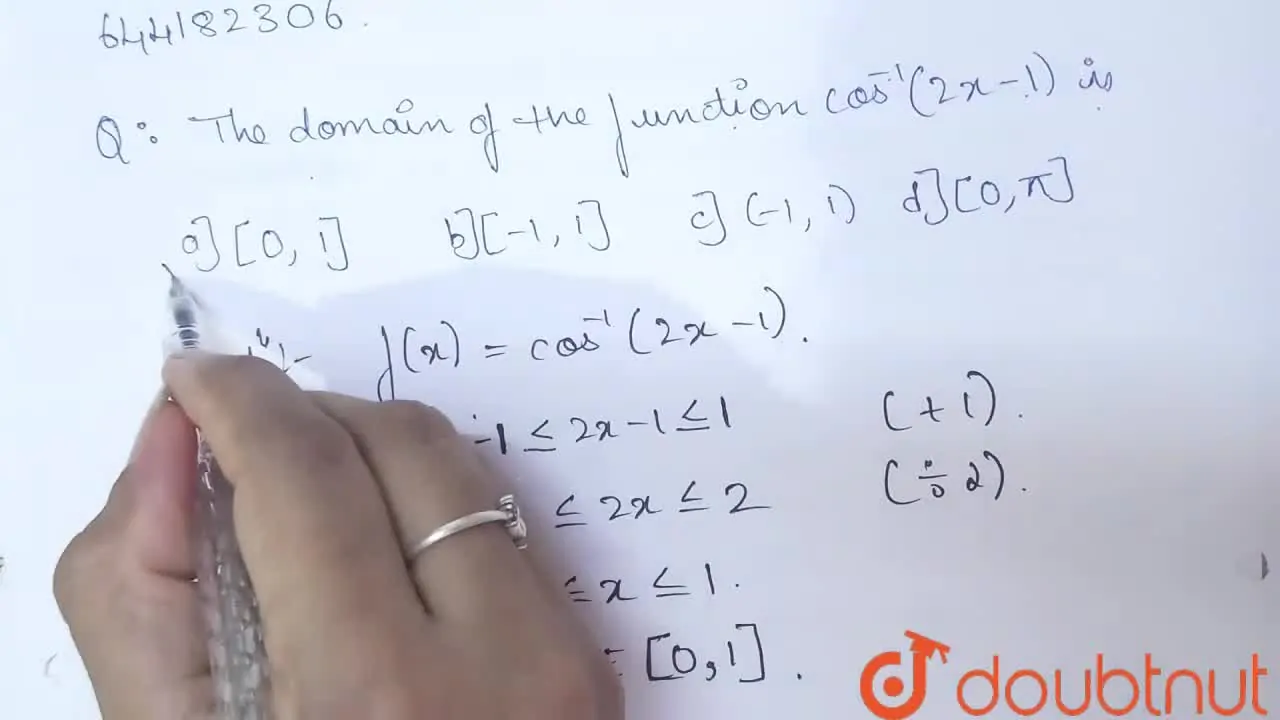 644182306.
Q: The domain of the function cos⁻¹(2x-1) is
a] [0, 1] b] [-1, 1] c] (-1, 1) d] [0, π]
f(x) = cos⁻¹(2x-1).
-1 ≤ 2x-1 ≤ 1 (+1).
≤ 2x ≤ 2 (÷2).
≤ x ≤ 1.
= [0,1].
doubtnut